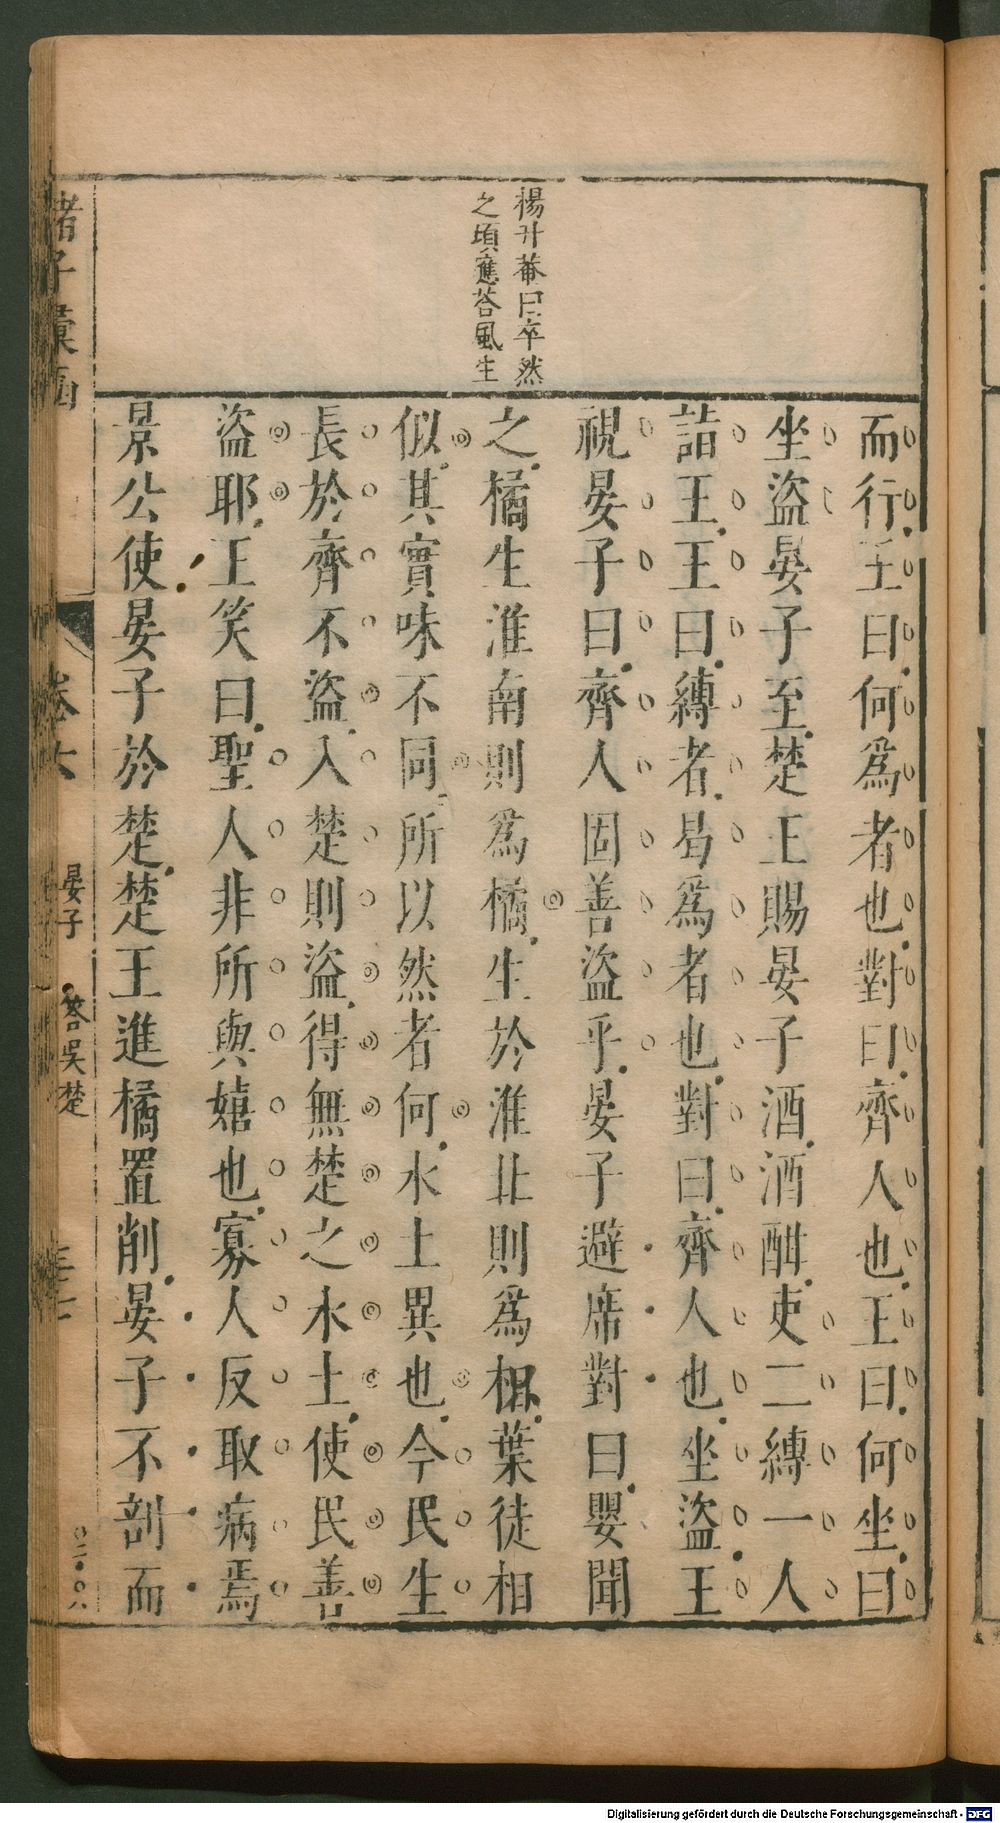 楊升菴曰卒然
之頃應荅風生
而行王曰何爲者也對曰齊人也王曰何坐曰
坐盜晏子至楚王賜晏子酒酒酣吏二縛一人
詣王王曰縛者曷爲者也對曰齊人也坐盜王
視晏子曰齊人固善盜乎晏子避席對曰嬰聞
之橘生淮南則爲橘生於淮北則爲枳葉徒相
似其實味不同所以然者何水土異也今民生
長於齊不盜入楚則盜得無楚之水土使民善
盜耶王笑曰聖人非所與嬉也寡人反取病焉
景公使晏子於楚楚王進橘置削晏子不剖而
諸子彙函
卷六
晏子 荅吳楚
Digitalisierung gefördert durch die Deutsche Forschungsgemeinschaft - DFG